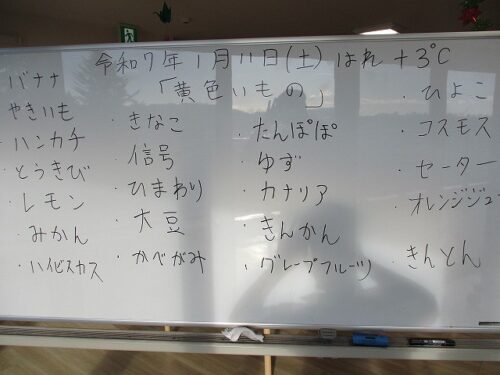 令和7年1月11日(土)はれ +3℃
「黄色いもの」
バナナ
やきいも
ハンカチ
とうきび
レモン
みかん
・ハイビスカス
・きなこ
・信号
・ひまわり
・大豆
・かべがみ
・たんぽぽ
・ゆず
・カナリア
・きんかん
・グレープフルーツ
・ひよこ
・コスモス
・セーター
・オレンジジュー
・きんとん